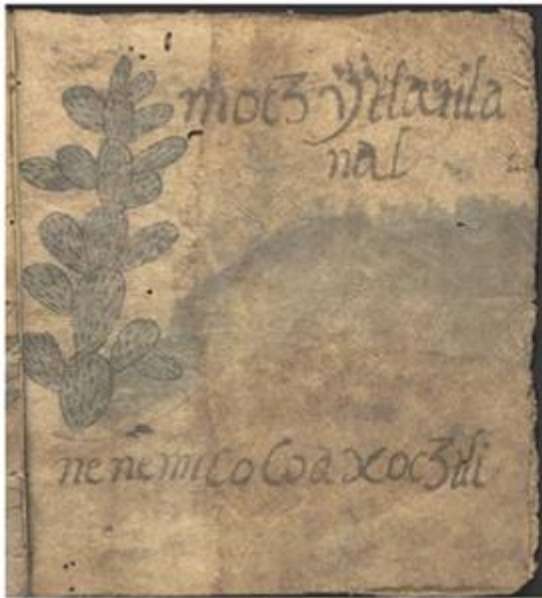 moctʒ ỹtlanila
nal
ne nemi co coa xocʒtli